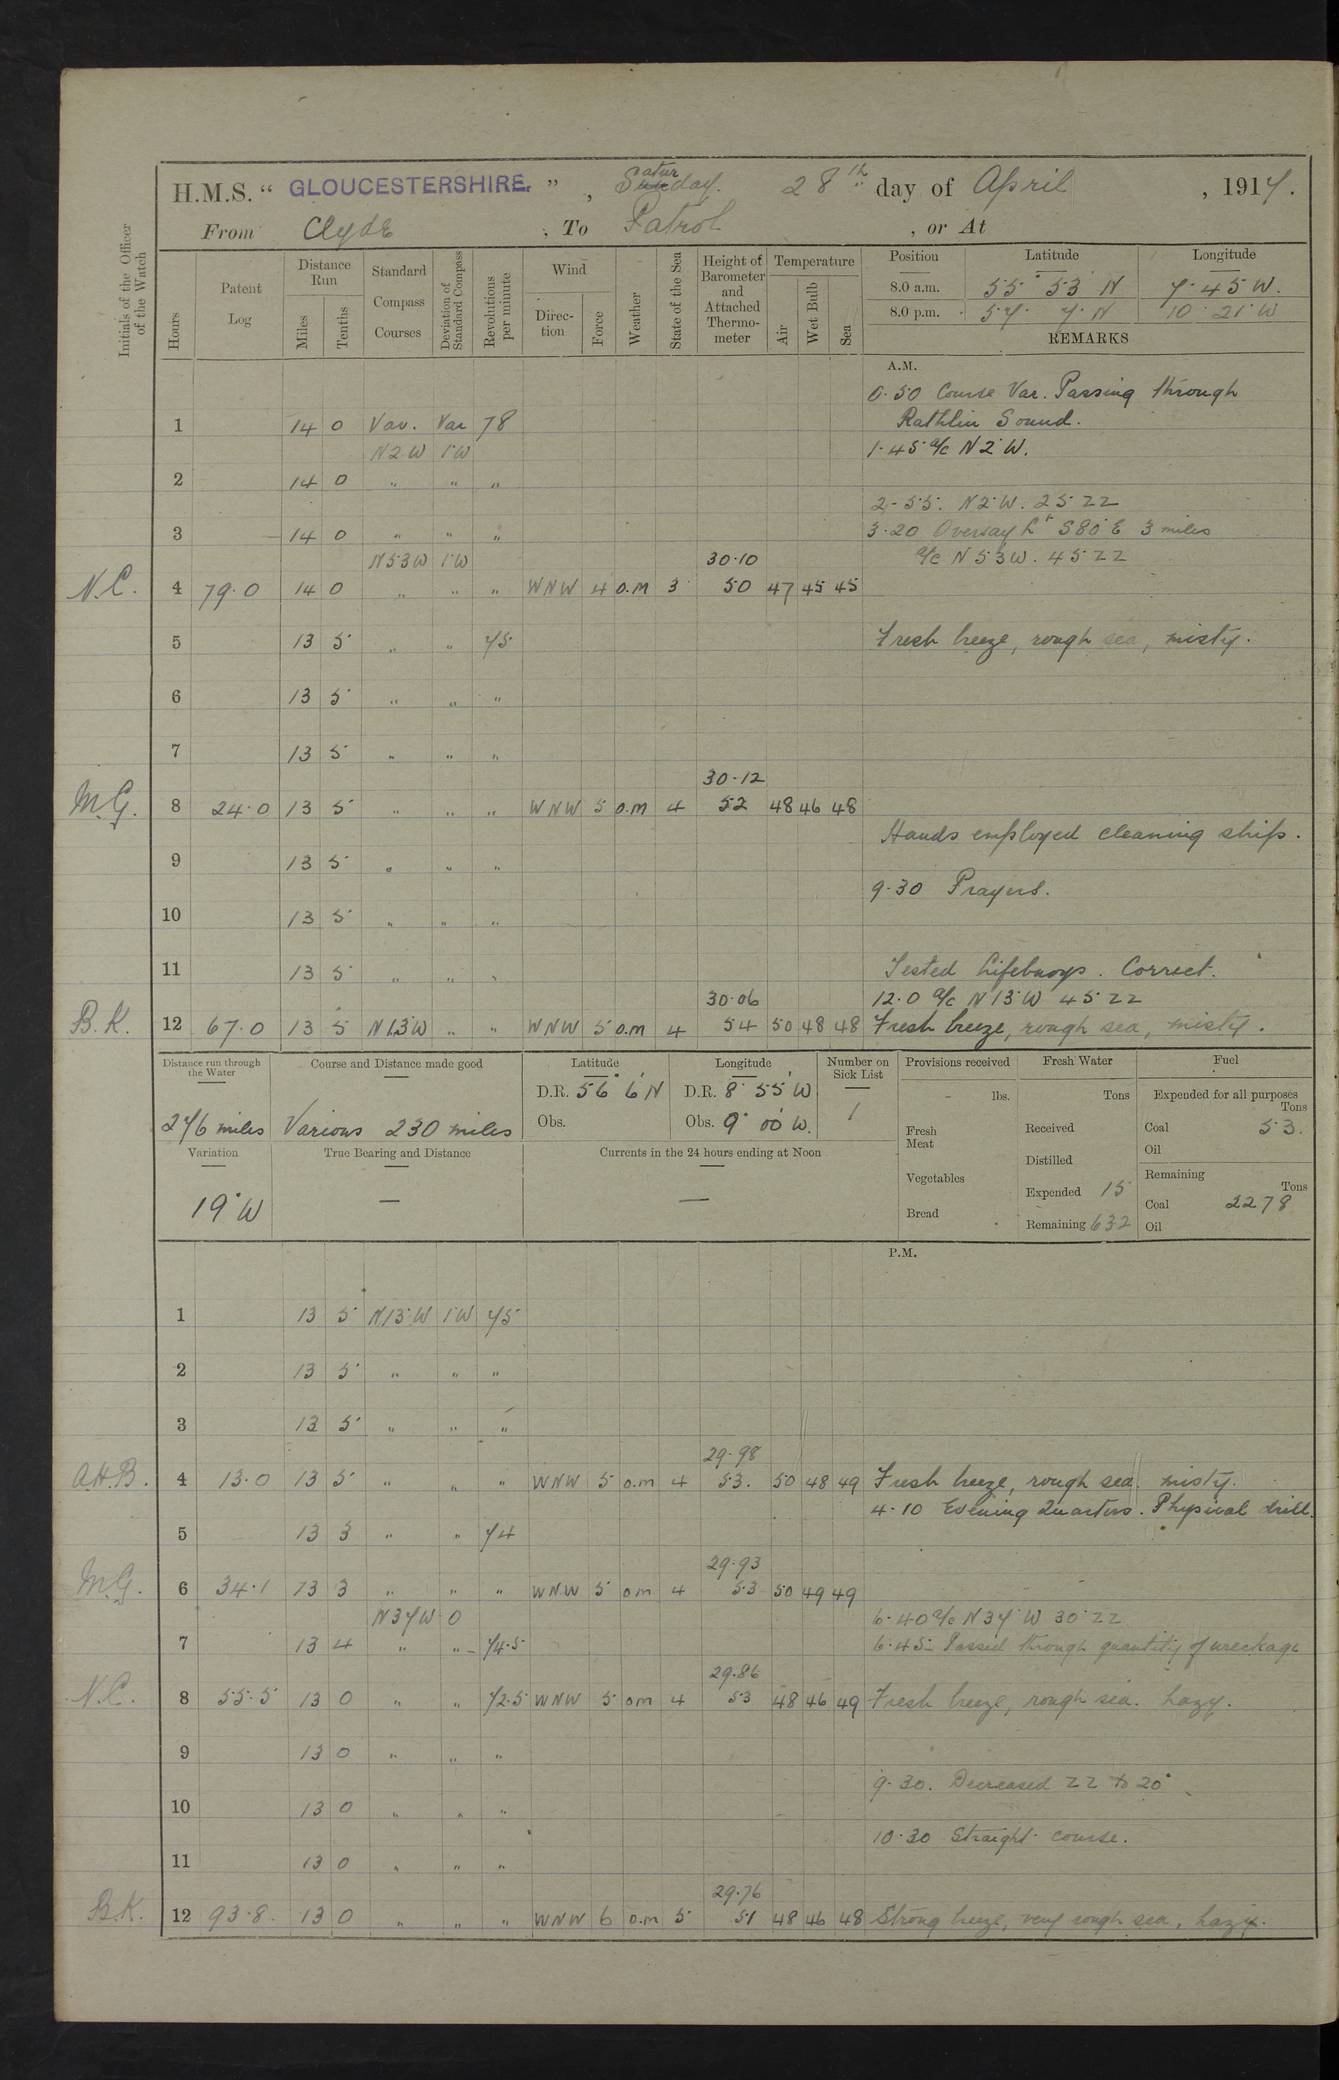 H.M.S. " GLOUCESTERSHIRE. " , Saturday. 28th day of April , 1917.
From Clyde , To Patrol , or At
Initials of the Officer of the Watch
Hours
Patent Log
Distance Run
Miles
Tenths
Standard Compass Courses
Deviation of Standard Compass
Revolutions per minute
Wind
Direction
Force
Weather
State of the Sea
Height of Barometer and Attached Thermometer
Temperature
Air
Wet Bulb
Sea
Position Latitude Longitude
8.0 a.m. 55° 53 N 7. 45 W.
8.0 p.m. 57. 7. N 10 21 W
REMARKS
A.M.
0.50 Course Var. Passing through
1 14 0 Var. Var 78 Rathlin Sound.
N2W 1°W 1.45 a/c N 2° W.
2 14 0 " " "
2-55. N2°W. 25 ZZ
3 14 0 " " " 3.20 Oversay Lt S80°E 3 miles
N53W 1°W 30.10 a/c N 53W. 45 ZZ
N.C. 4 79.0 14 0 " " " WNW 4 o.m 3 50 47 45 45
5 13 5 " " 75 Fresh breeze, rough sea, misty.
6 13 5 " " "
7 13 5 " " "
30.12
M.G. 8 24.0 13 5 " " " WNW 5 o.m 4 52 48 46 48
Hands employed cleaning ship.
9 13 5 " " "
9.30 Prayers.
10 13 5 " " "
11 13 5 " " " Tested Lifebuoys. Correct.
30.06 12.0 a/c N 13°W 45 ZZ
B.K. 12 67.0 13 5 N13W " " WNW 5 o.m 4 54 50 48 48 Fresh breeze, rough sea, misty.
Distance run through the Water
276 miles
Course and Distance made good
Various 230 miles
Latitude
D.R. 56° 6' N
Obs.
Longitude
D.R. 8° 55' W
Obs. 9° 00' W.
Number on Sick List
1
Provisions received
lbs.
Fresh Meat
Vegetables
Bread
Fresh Water
Tons
Received
Distilled
Expended 15
Remaining 632
Fuel
Expended for all purposes
Tons
Coal 53.
Oil
Remaining
Tons
Coal 2278
Oil
Variation
19°W
True Bearing and Distance
—
Currents in the 24 hours ending at Noon
—
P.M.
1 13 5 N13°W 1°W 75
2 13 5 " " "
3 13 5 " " "
29.98
A.H.B. 4 13.0 13 5 " " " WNW 5 o.m 4 53. 50 48 49 Fresh breeze, rough sea. misty.
4.10 Evening Quarters. Physical drill.
5 13 3 " " 74
29.93
M.G. 6 34.1 13 3 " " " WNW 5 om 4 53 50 49 49
N37W 0 6.40 a/c N 37° W 30 ZZ
7 13 4 " " 74.5 6.45 Passed through quantity of wreckage
29.86
N.C. 8 55.5 13 0 " " 72.5 WNW 5 om 4 53 48 46 49 Fresh breeze, rough sea. hazy.
9 13 0 " " "
9.30. Decreased ZZ to 20°
10 13 0 " " "
10.30 Straight course.
11 13 0 " " "
29.76
B.K. 12 93.8. 13 0 " " " WNW 6 o.m 5 51 48 46 48 Strong breeze, very rough sea, hazy.